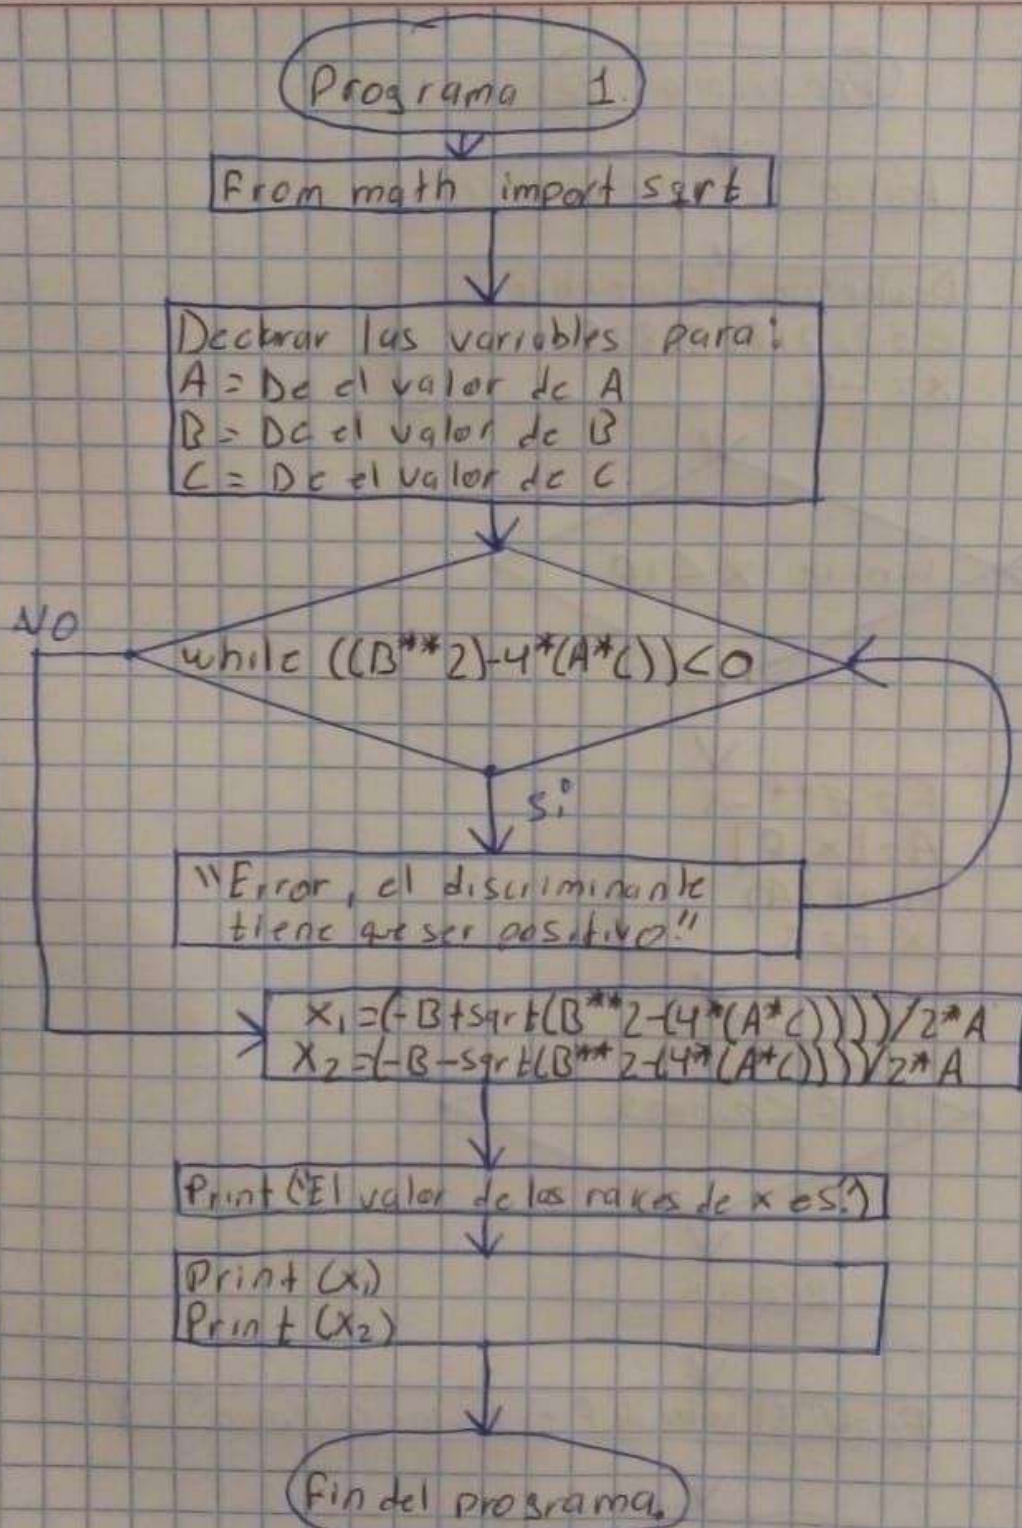 Programa 1.
From math import sqrt
Declarar las variables para:
A = De el valor de A
B = De el valor de B
C = De el valor de C
NO
while ((B**2)-4*(A*C))<0
si
"Error, el discriminante
tiene que ser positivo!"
X1=(-B+sqrt(B**2-(4*(A*C))))/2*A
X2=(-B-sqrt(B**2-(4*(A*C))))/2*A
Print("El valor de las raices de x es:")
Print (X1)
Print (X2)
Fin del programa.